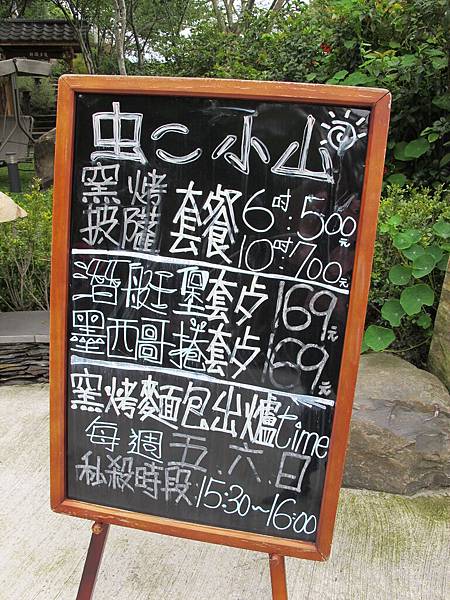 虫二小山
窯烤披薩 套餐 6吋:500元
10吋:700元
潛艇堡套点 169元
墨西哥捲套点 169元
窯烤麵包出爐time
每週五.六.日
私殺時段:15:30~16:00